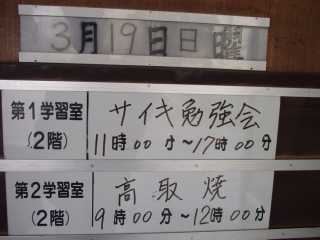 3月19日日曜
第1学習室 サイキ勉強会
(2階) 11時00分~17時00分
第2学習室 高取焼
(2階) 9時00分~12時00分